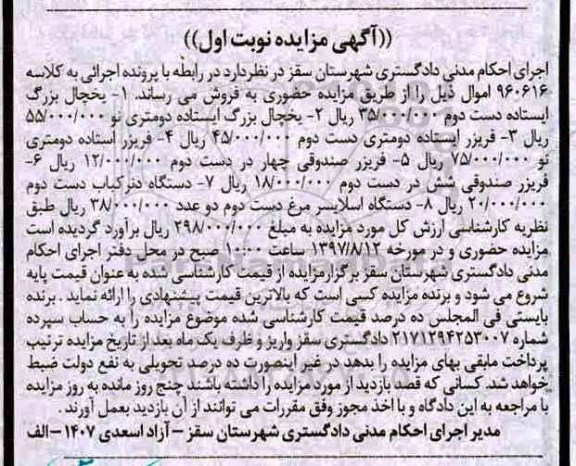 ((آگهی مزایده نوبت اول))
اجرای احکام مدنی دادگستری شهرستان سقز در نظردارد در رابطه با پرونده اجرائی به کلاسه
۹۶۰۶۱۶ اموال ذیل را از طریق مزایده حضوری به فروش می رساند. ۱- یخچال بزرگ
ایستاده دست دوم ۳۵/۰۰۰/۰۰۰ ریال ۲- یخچال بزرگ ایستاده دومتری نو ۵۵/۰۰۰/۰۰۰
ریال ۳- فریزر ایستاده دومتری دست دوم ۴۵/۰۰۰/۰۰۰ ریال ۴- فریزر استاده دومتری
نو ۷۵/۰۰۰/۰۰۰ ریال ۵- فریزر صندوقی چهار در دست دوم ۱۲/۰۰۰/۰۰۰ ریال ۶-
فریزر صندوقی شش در دست دوم ۱۸/۰۰۰/۰۰۰ ریال ۷- دستگاه دنرکباب دست دوم
۲۰/۰۰۰/۰۰۰ ریال ۸- دستگاه اسلایسر مرغ دست دوم دو عدد ۳۸/۰۰۰/۰۰۰ ریال طبق
نظریه کارشناسی ارزش کل مورد مزایده به مبلغ ۲۹۸/۰۰۰/۰۰۰ ریال برآورد گردیده است
مزایده حضوری و در مورخه ۱۳۹۷/۸/۱۲ ساعت ۱۰:۰۰ صبح در محل دفتر اجرای احکام
مدنی دادگستری شهرستان سقز برگزارمزایده از قیمت کارشناسی شده به عنوان قیمت پایه
شروع می شود و برنده مزایده کسی است که بالاترین قیمت پیشنهادی را ارائه نماید . برنده
بایستی فی المجلس ده درصد قیمت کارشناسی شده موضوع مزایده را به حساب سپرده
شماره ۲۱۷۱۲۹۴۲۵۳۰۰۷ دادگستری سقز واریز و ظرف یک ماه بعد از تاریخ مزایده ترتیب
پرداخت مابقی بهای مزایده را بدهد در غیر اینصورت ده درصد تحویلی به نفع دولت ضبط
خواهد شد. کسانی که قصد بازدید از مورد مزایده را داشته باشند چنج روز مانده به روز مزایده
با مراجعه به این دادگاه و با اخذ مجوز وفق مقررات می توانند از آن بازدید بعمل آورند .
مدیر اجرای احکام مدنی دادگستری شهرستان سقز – آزاد اسعدی ۱۴۰۷ – الف